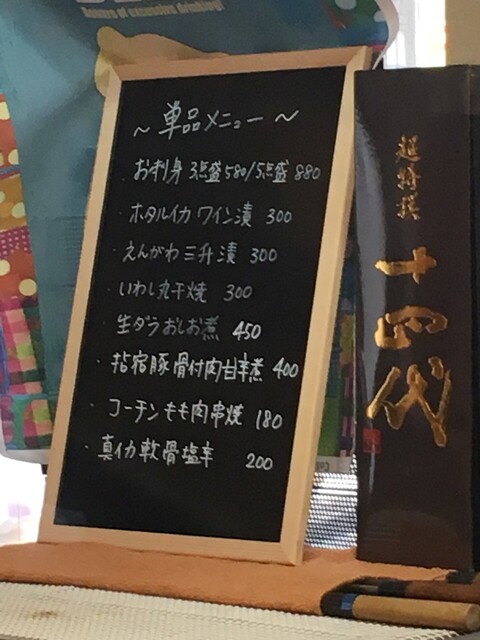 ～単品メニュー～
・お刺身 3点盛580/5点盛 880
・ホタルイカ ワイン漬 300
・えんがわ三升漬 300
・いわし丸干焼 300
・生ダラおしお煮 450
・指宿豚骨付肉甘辛煮 400
・コーチンもも肉串焼 180
・真イカ軟骨塩辛 200
超特撰
十四代